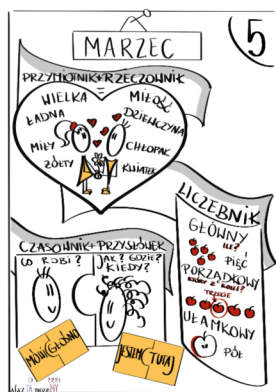 5
MARZEC
PRZYMIOTNIK+RZECZOWNIK
=
WIELKA MIŁOŚĆ
ŁADNA DZIEWCZYNA
MIŁY CHŁOPAK
ŻÓŁTY KWIATEK
LICZEBNIK
GŁÓWNY
ILE?
PIĘĆ
PORZĄDKOWY
KTÓRY Z KOLEI?
TRZECIE
UŁAMKOWY
PÓŁ
CZASOWNIK+PRZYSŁÓWEK
CO ROBI?
JAK? GDZIE?
KIEDY?
MÓWI GŁOŚNO
JESTEM TUTAJ